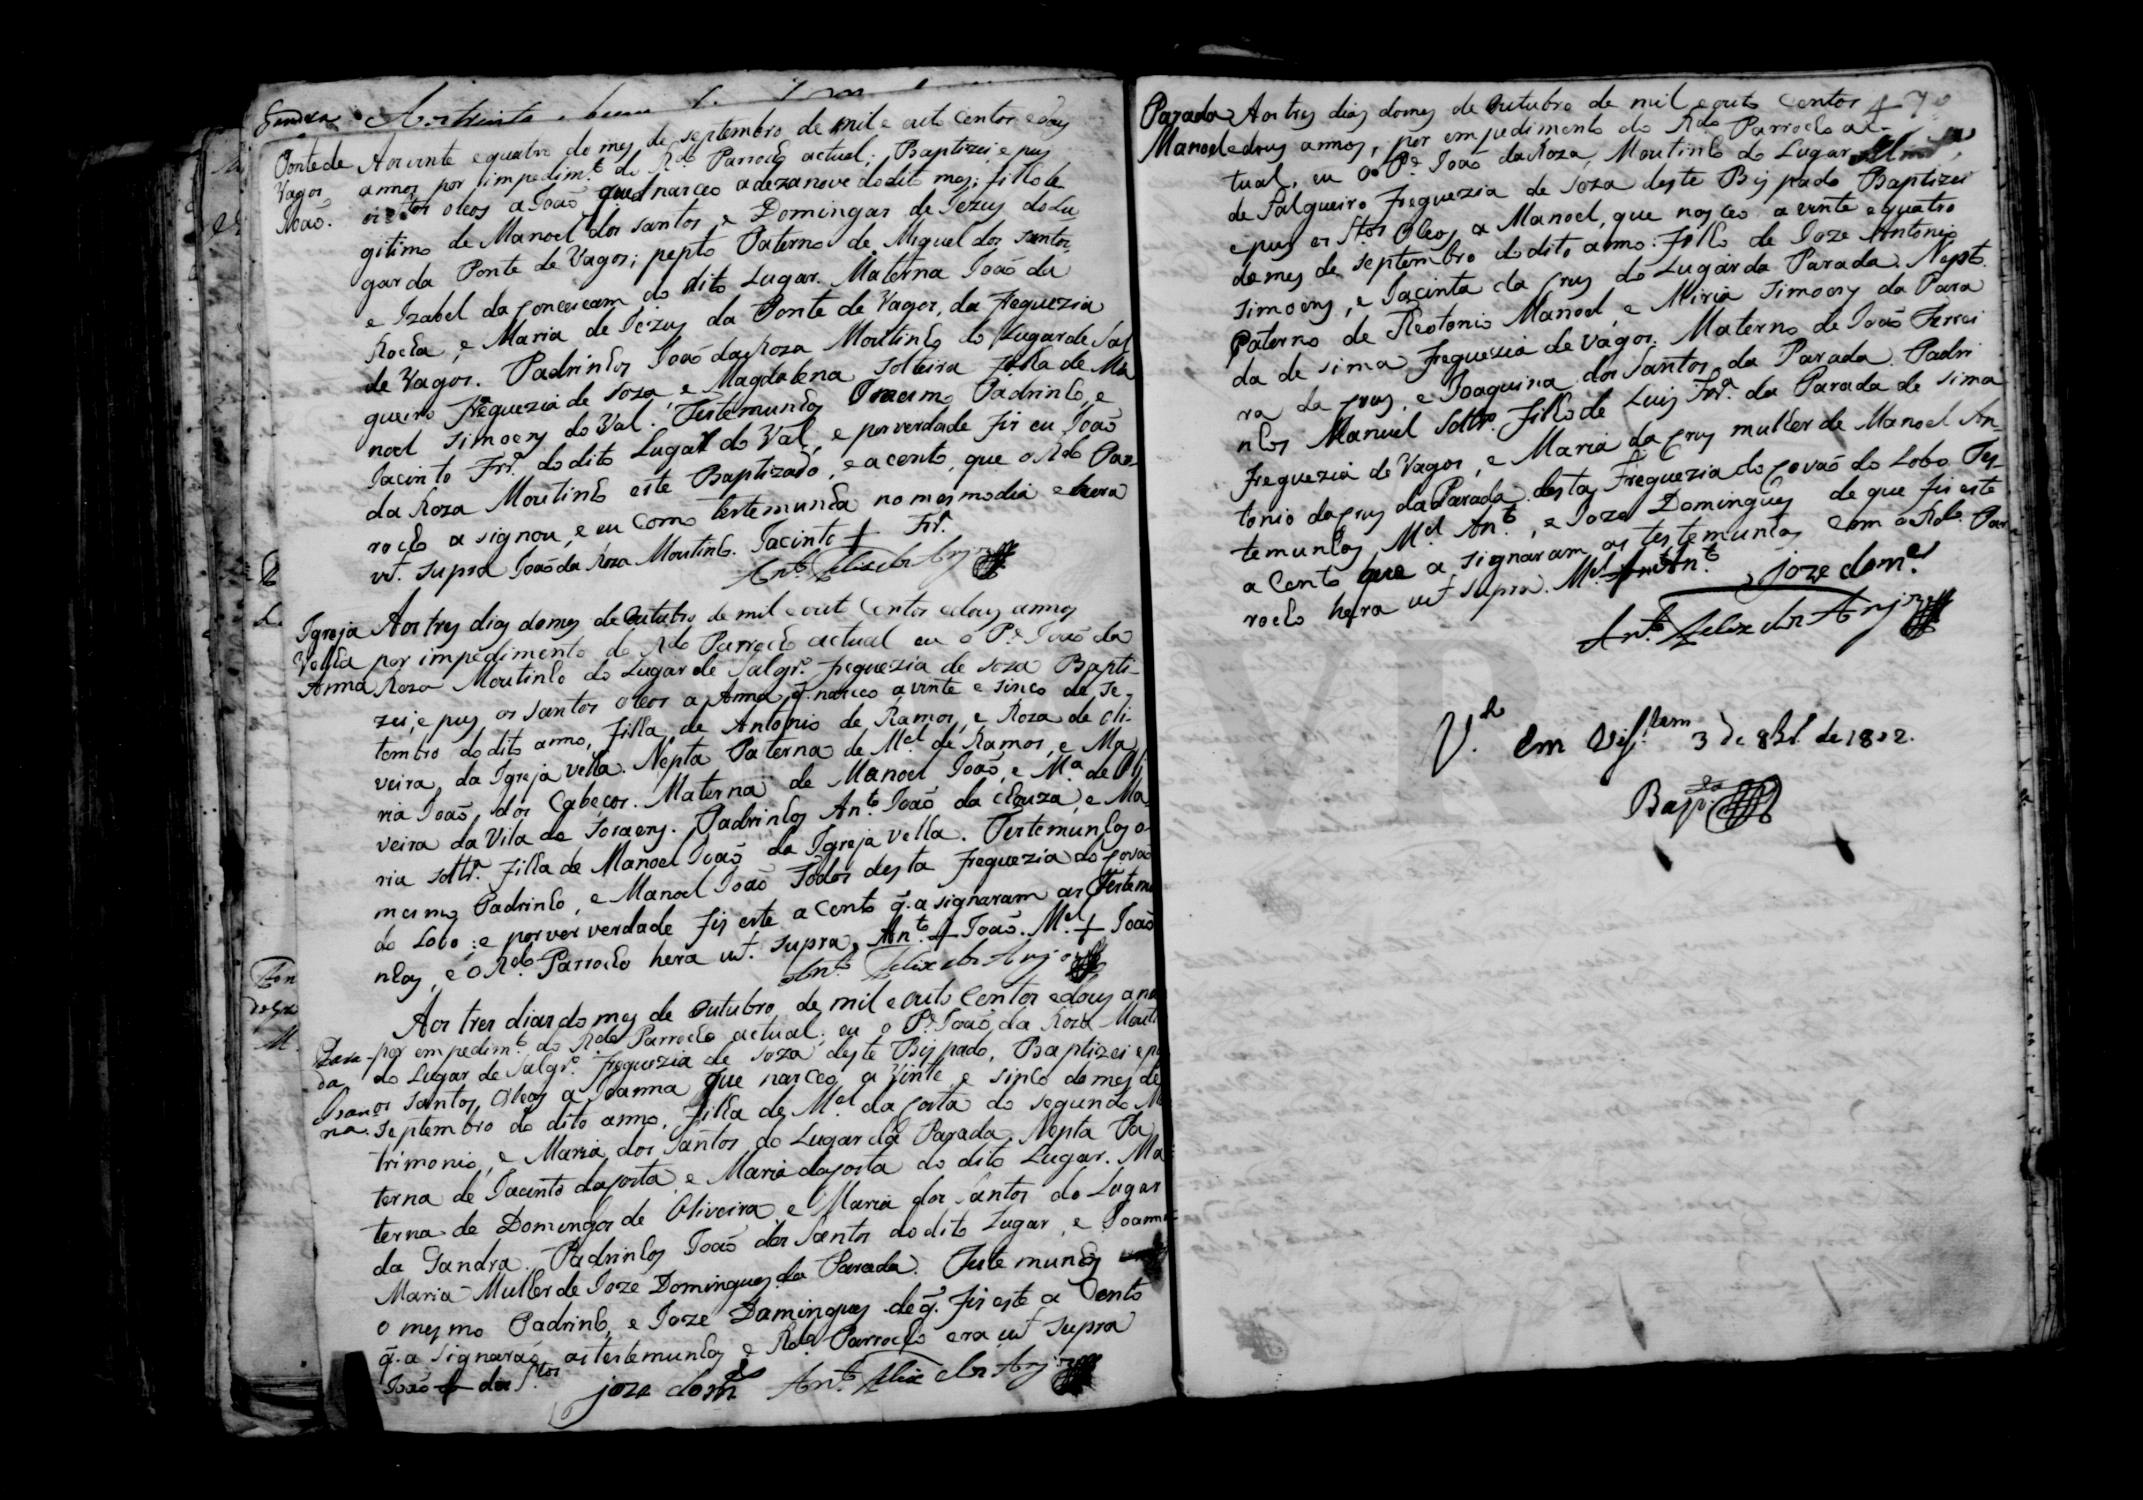 Gandra Aos trinta e hum
Ponte de Vagos João. Aos vinte e quatro do mes de septembro de mil e outo centos e dous
annos por impedim.to do R.do Parrocho actual; Baptizei e pus
os s.tos oleos a João que nasceo a dezanove do dito mes; filho le
gitimo de Manoel dos santos, e Domingas de Jezus do Lu
gar da Ponte de Vagos; nepto Paterno de Miguel dos santos
e Izabel da conceicam do dito Lugar. Materna João da
Rocha, e Maria de Jezus da Ponte de Vagos, da freguezia
de Vagos. Padrinhos João da Roza Moutinho do Lugar de Sal
gueiro freguezia de soza, e Magdalena solteira filha de Ma
noel simoens do Val. Testemunhas O mesmo Padrinho, e
Jacinto Frr.a do dito Lugar do Val, e por verdade fis eu João
da Roza Moutinho este Baptizado, e acento, que o R.do Par
rocho a signou, e eu como testemunha no mesmo dia e hera
ut. supra João da Roza Moutinho. Jacinto + Frr.a
Ant.o Felix dos Anjos
Igreja Aos tres dias do mes de Outubro de mil e outo Centos e dous annos
Velha por impedimento do R.do Parrocho actual eu o P.e João da
Anna Roza Moutinho do Lugar de Salgr.o freguezia de soza Bapti-
zei, e pus os santos oleos a Anna q. nasceo a vinte e sinco de se
tembro do dito anno, filha de Antonio de Ramos, e Roza de oli-
veira, da Igreja velha. Nepta Paterna de M.el de Ramos, e Ma
ria João, dos Cabeços. Materna de Manoel João, e M.a de Oli
veira da Vila de
ria soltr.a filha de Manoel João da Igreja velha. Testemunhas o
mesmo Padrinho, e Manoel João Todos desta freguezia do Covão
do Lobo; e por ver verdade fis este a cento q. a signaram as Testemu
nhas, e o R.do Parrocho hera ut. supra, Ant.o + João. M.el + João
Ant.o Felix dos Anjos
Aos tres dias do mes de Outubro de mil e outo Centos e dous ann
Para- por empedim.to do R.do Parrocho actual; eu o P.e João da Roza Mouti
da do Lugar de Salgr.o freguezia de soza deste Bispado, Baptizei e pu
Joan os santos Oleos a Joanna que nasceo a vinte e sinco do mes de
na. septembro do dito anno, filha de M.el da Costa do segundo Ma
trimonio, e Maria dos Santos do Lugar da Parada, Nepta Pa
terna de Jacinto da Costa e Maria da Costa do dito Lugar. Ma
terna de Domingos de Oliveira e Maria dos Santos do Lugar
da Gandra. Padrinhos João dos Santos do dito Lugar, e Joanna
Maria Mulher de Joze Domingues da Parada. Testemunhas
o mesmo Padrinho, e Joze Domingues de q. fis este a Cento
q. a signarão as testemunhas e R.do Parrocho era ut supra
João + dos S.tos joze dom.es Ant.o Felix dos Anjos
Parada Aos tres dias do mes de Outubro de mil e outo Centos
Manoel e dous annos, por empedimento do R.do Parrocho ac-
tual, eu o P.e João da Roza Moutinho do Lugar
de Salgueiro freguezia de soza deste Bispado Baptizei
e pus os S.tos Oleos a Manoel, que nasceo a vinte e quatro
do mes de septembro do dito anno: filho de Joze Antonio
simoens, e Jacinta da Crus do Lugar da Parada. Nepto
Paterno de Theotonio Manoel, e Miria simoens da Para
da de sima freguezia de Vagos. Materno de João Ferrei
ra da Crus, e Joaquina dos Santos da Parada. Padri
nhos Manuel soltr.o filho de Luis Frr.a da Parada de sima
freguezia de Vagos, e Maria da Crus mulher de Manoel An
tonio da Crus da Parada desta Freguezia do Covão do Lobo. Tes-
temunhas M.el An.to, e Joze Domingues de que fis este
a Cento que a signaram as testemunhas com o R.do Par
rocho hera ut supra. M.el Ant.o joze dom.es
Ant.o Felix dos Anjos
V.to em Viz.tam 3 de 8br.o de 1802.
Bap.ta
VR